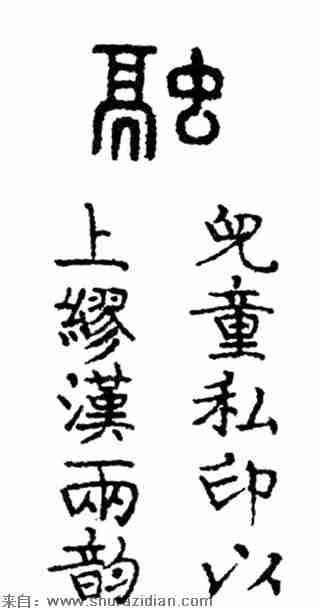 融
兒童私印以
上繆漢兩韵
来自：www.shufazidian.com